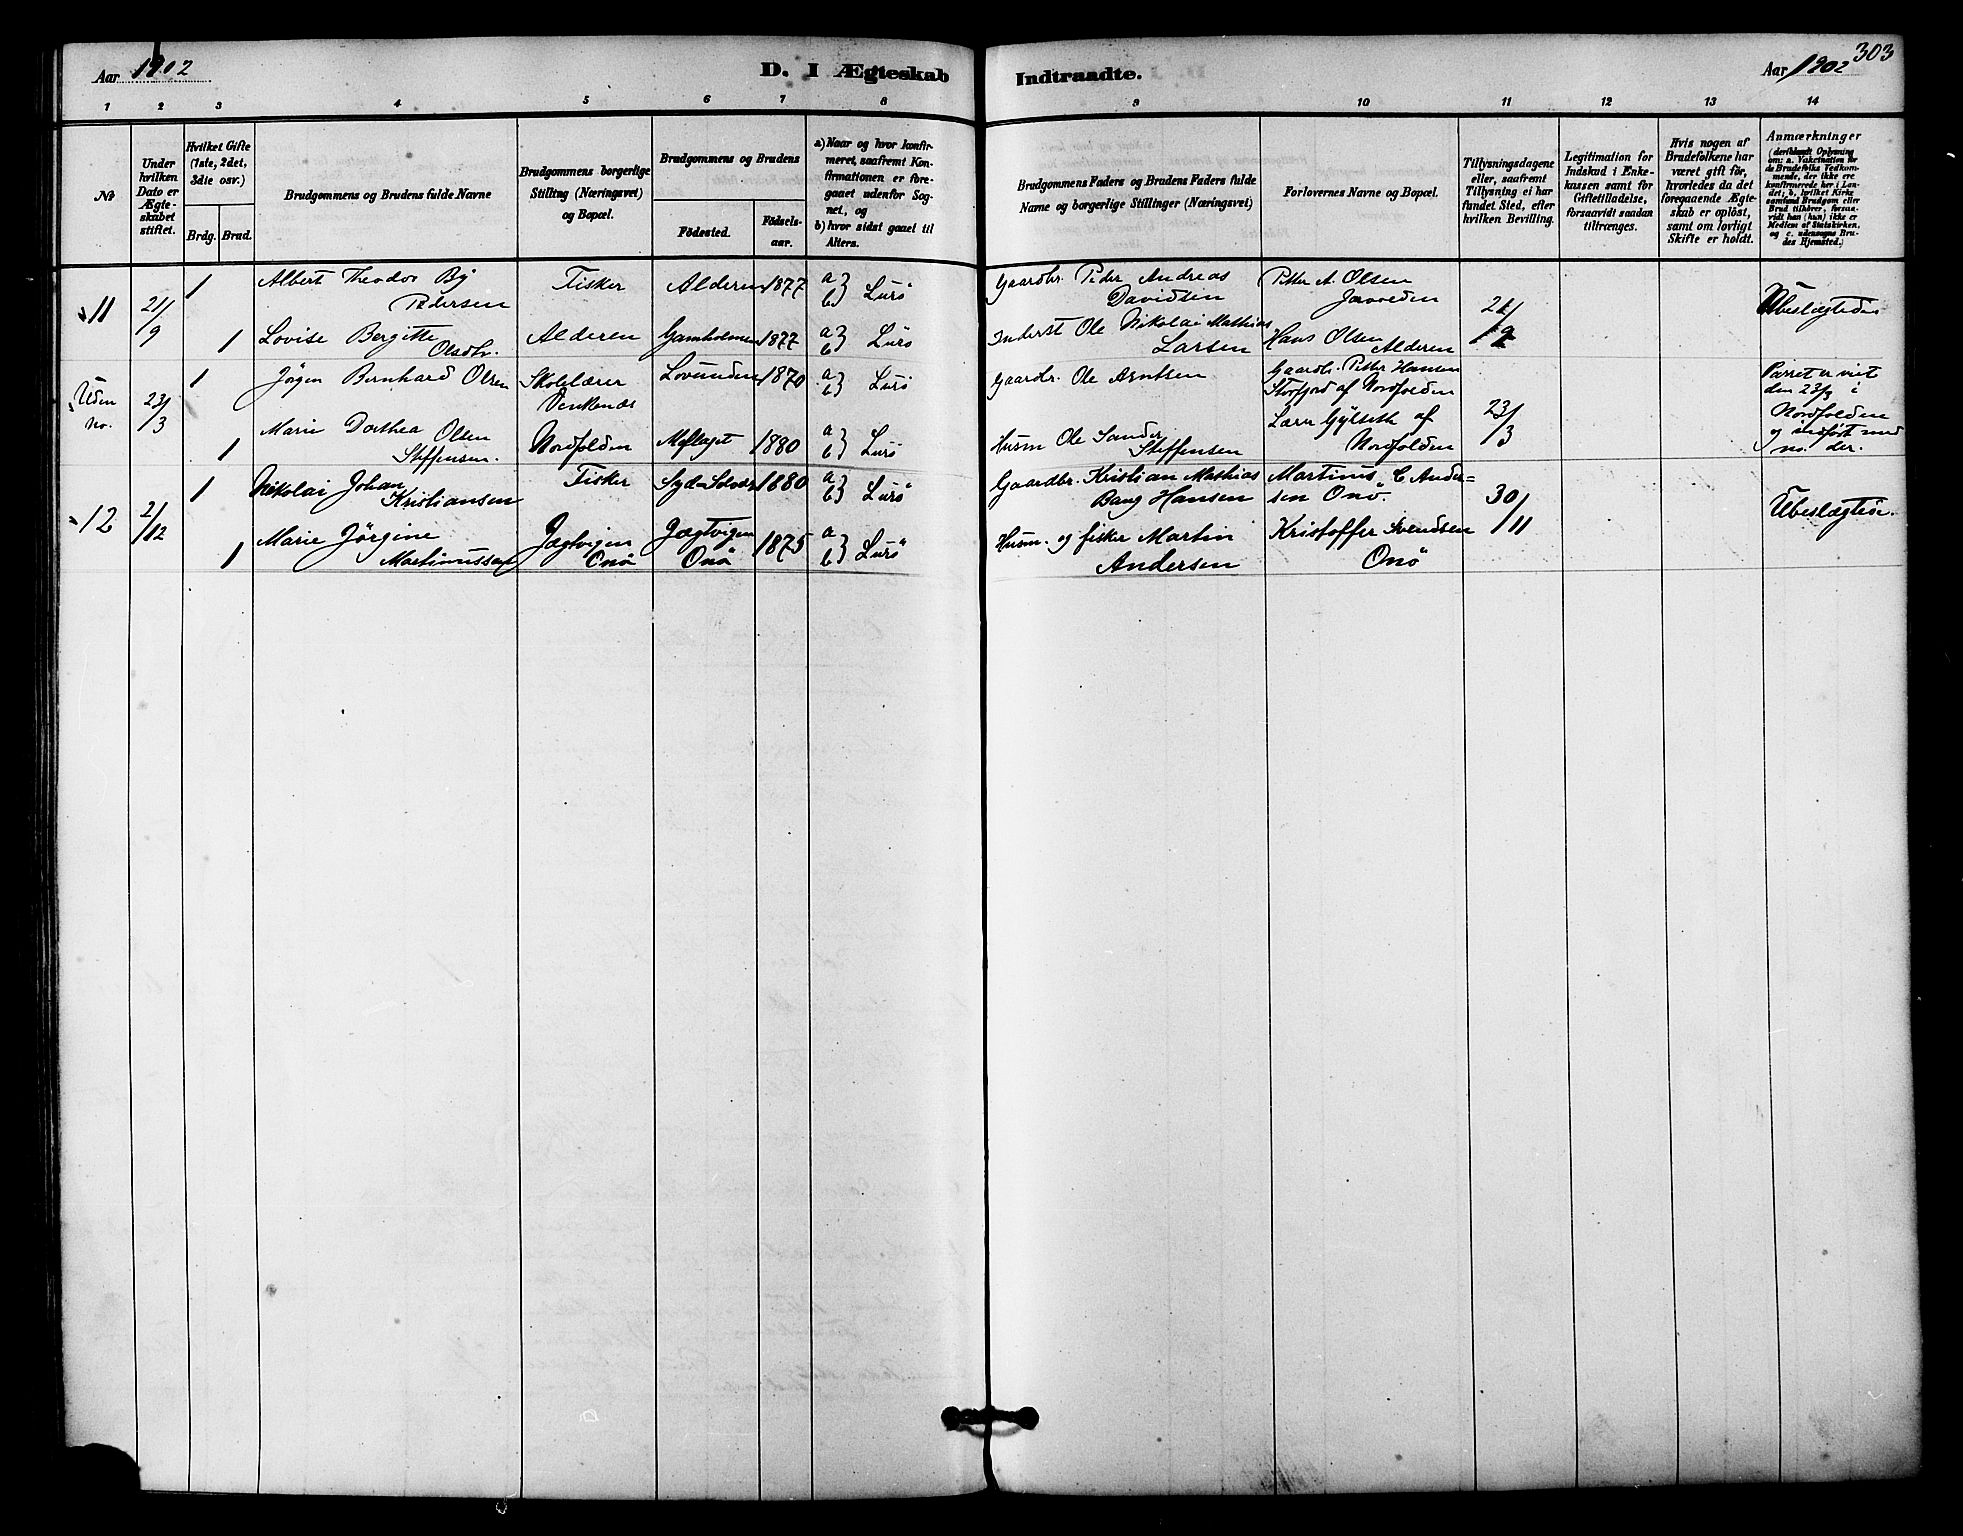 Aar 1902
D. I Ægteskab
Indtraadte.
Aar 1902
303
1 2 3 4 5 6 7 8 9 10 11 12 13 14
№
Under hvilken Dato er Ægteskabet stiftet.
Hvilket Gifte (1ste, 2det, 3die osv.)
Brdg. Brud.
Brudgommens og Brudens fulde Navne
Brudgommens borgerlige Stilling (Næringsvei) og Bopæl.
Brudgommens og Brudens
Födested.
Födselsaar.
a) Naar og hvor konfirmeret, saafremt Konfirmationen er foregaaet udenfor Sognet, og
b) hvor sidst gaaet til Alters.
Brudgommens Faders og Brudens Faders fulde Navne og borgerlige Stillinger (Næringsvei)
Forlovernes Navne og Bopæl.
Tillysningsdagene eller, saafremt Tillysning ei har fundet Sted, efter hvilken Bevilling.
Legitimation for Indskud i Enkekassen samt for Giftetilladelse, forsaavidt saadan tiltrænges.
Hvis nogen af Brudefolkene har været gift för, hvorledes da det foregaaende Ægteskab er oplöst, samt om lovligt Skifte er holdt.
Anmærkninger
(deriblandt Oplysning om: a. Vakcination for de Brudefolks Vedkommende, der ikke ere konfirmerede her i Landet; b. hvilket Kirkesamfund Brudgom eller Brud tilhörer, forsaavidt han (hun) ikke er Medlem af Statskirken, og c. udensogns Brudes Hjemsted.)
11 21/9 1 Albert Theodor By Pedersen Fisker Alderen 1877 a} b} Lurö Gaardbr. Peder Andreas Davidsen Petter A. Olsen 21/9 Ubeslægtede
1 Lovise Bergitte Olsdtr. Alderen Gamholmen 1877 a} b} Lurö Inderst Ole Nikolai Mathias Larsen Hans Olsen Alderen
Uden no. 23/3 1 Jörgen Bernhard Olsen Skolelærer Lovunden 1870 a} b} Lurö Gaardbr. Ole Arntsen Gaardbr. Petter Hansen Storfjord af Nordfolden 23/3 Parret er viet den 23/3 i Nordfolden og indfört med no. der.
1 Marie Dorthea Olsen Steffensen. Nordfolden 1880 a} b} Lurö Husm Ole Sander Steffensen Lærer Gylseth af Nordfolden
12 2/12 1 Nikolai Johan Kristiansen Fisker 1880 a} b} Lurö Gaardbr. Kristian Mathias Bang Hansen Martinus C Andersen Onö. 30/11 Ubeslægtede.
1 Marie Jörgine Jægtvigen Onö Jægtvigen Onö 1875 a} b} Lurö Husm. og fisker Martin Andersen Kristoffer Svendsen Onö